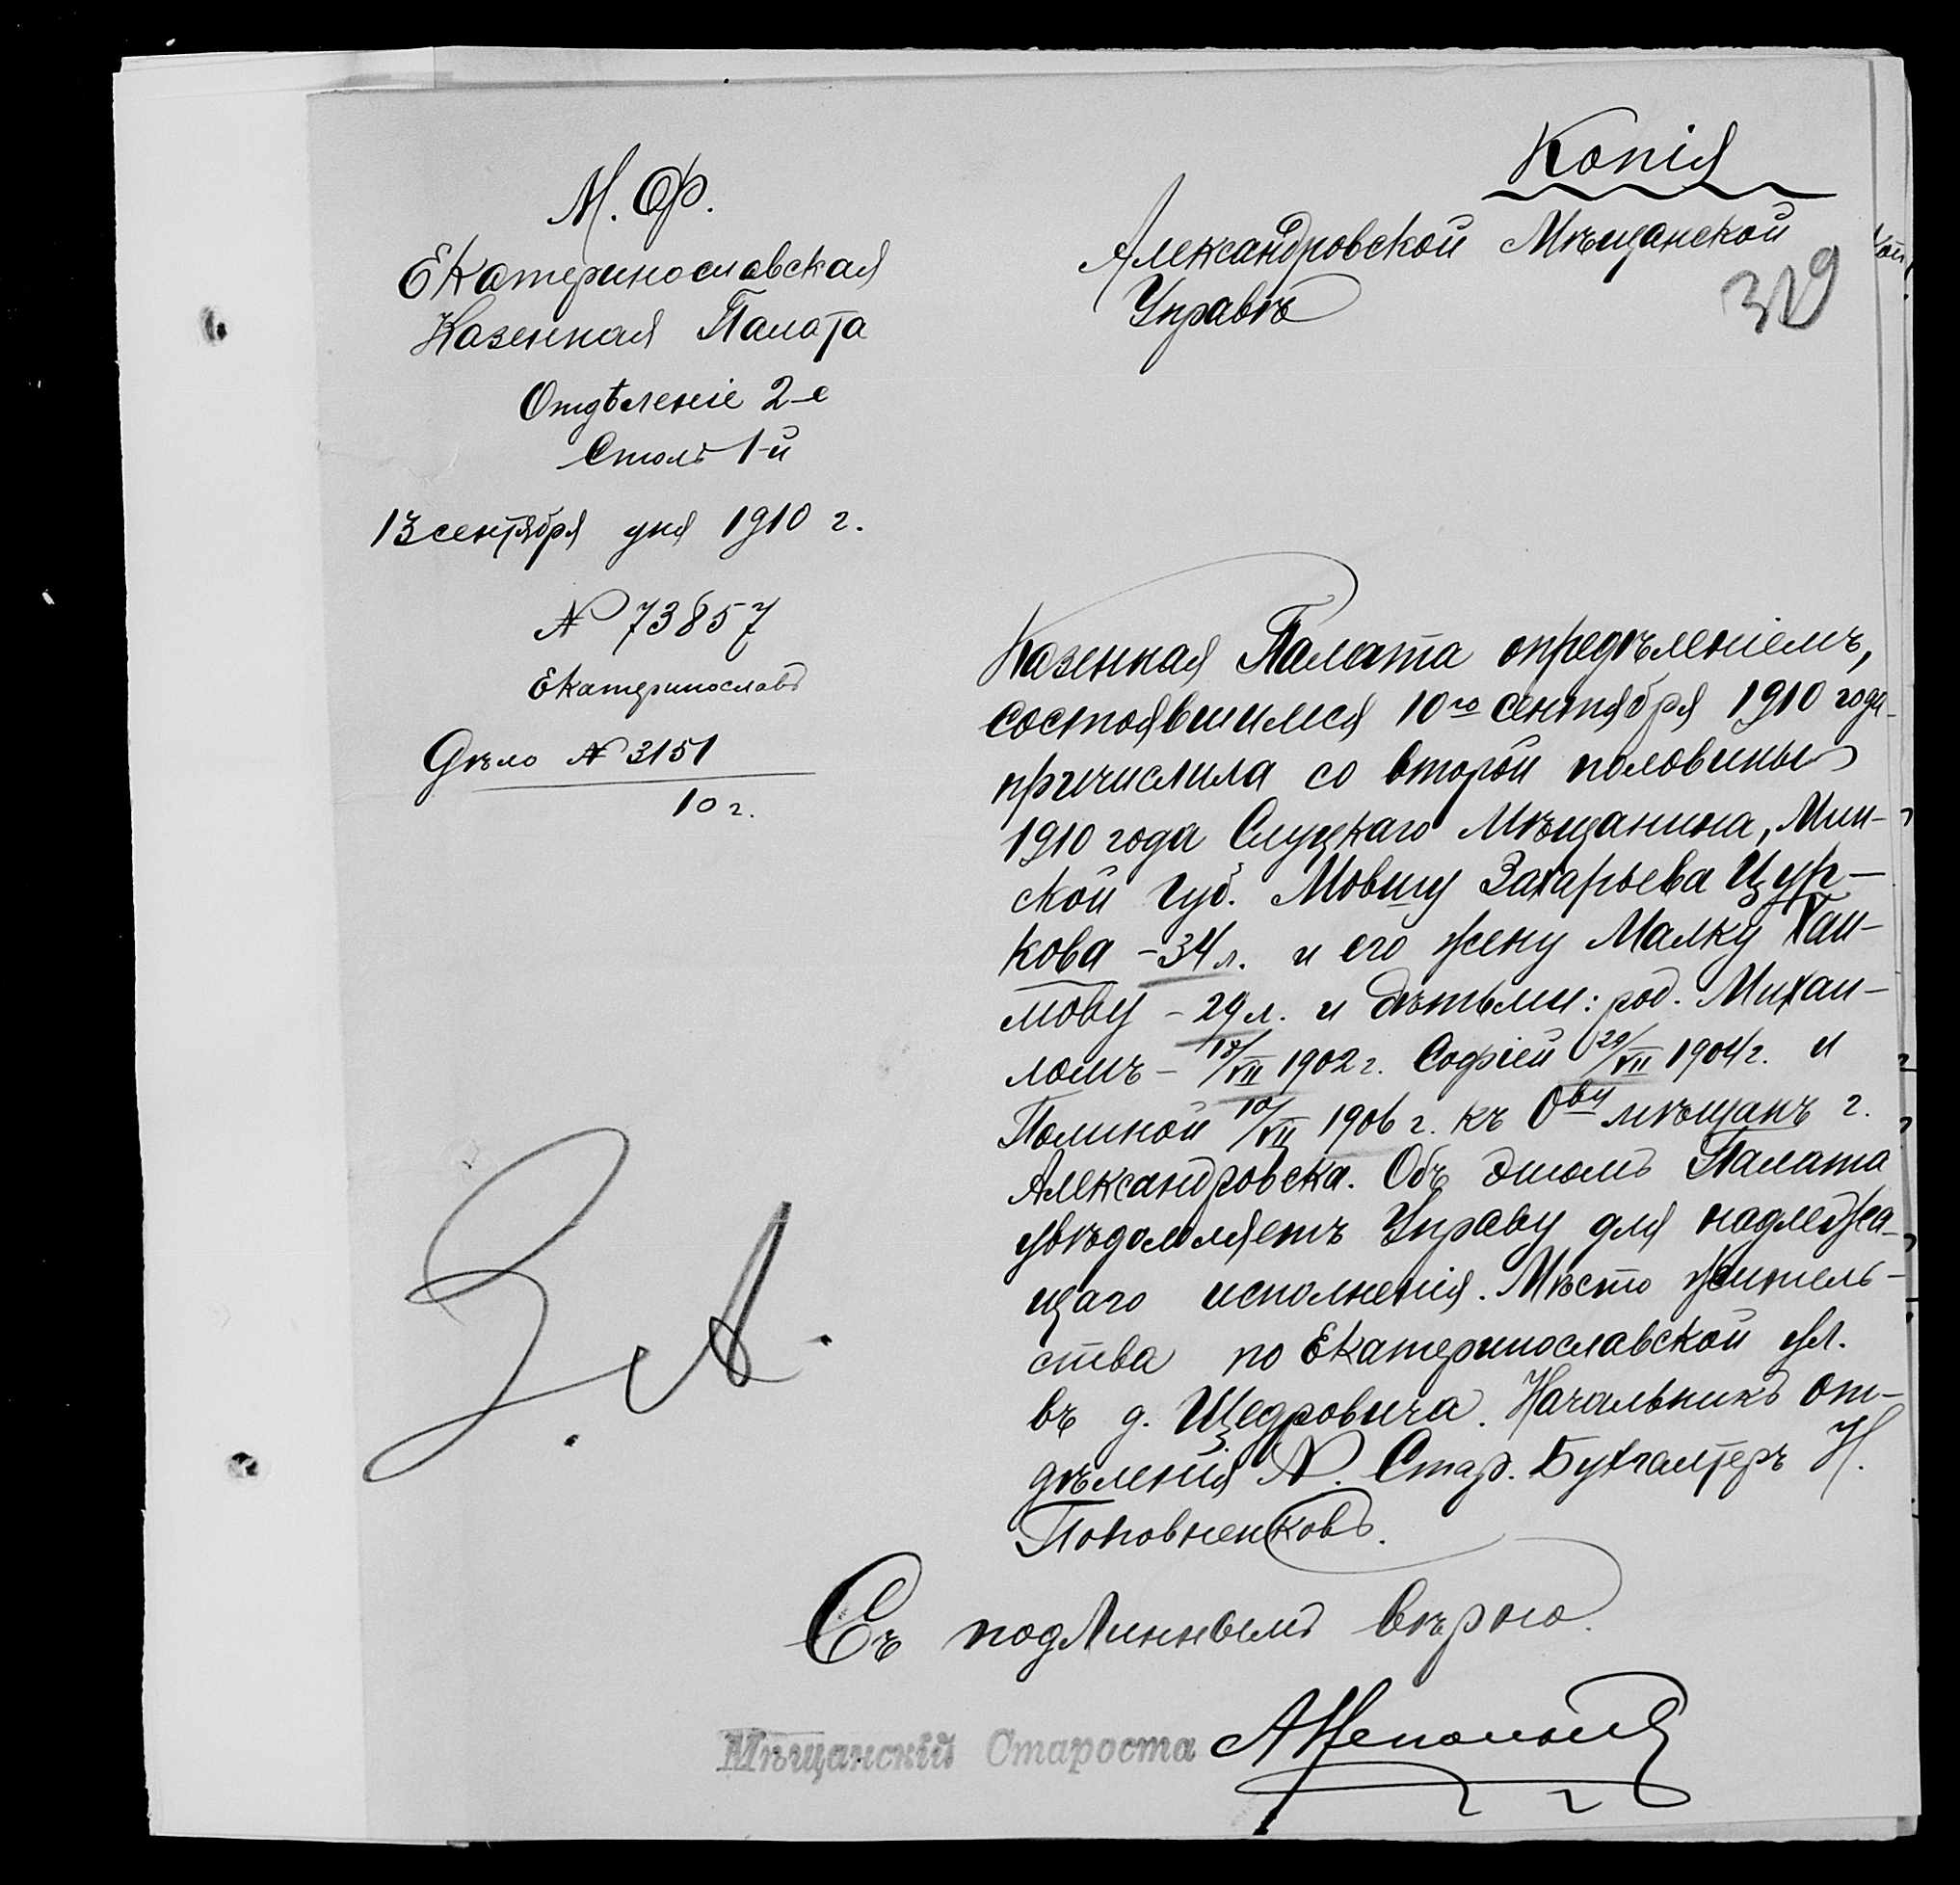 Копія
М. Ф.
Екатеринославская
Казенная Палата
Отдѣленіе 2-е
Столъ 1-й
13 сентября дня 1910 г.
№ 73857
Екатеринославъ
Дѣло № 3151
10 г.
Александровской Мѣщанской
Управѣ
319
Казенная Палата опредѣленіемъ,
состоявшимся 10го сентября 1910 года
причислила со второй половины
1910 года Слуцкаго Мѣщанина, Мин-
ской губ. Мовшу Захарьева Цур-
кова - 34 л. и его жену Малку Хаи-
мову - 29 л. и дѣтьми: род. Михаи-
ломъ - 18/VII 1902 г. Софіей 29/VII 1904 г. и
Полиной 10/VII 1906 г. къ Обву мѣщанъ г.
Александровска. Объ этомъ Палата
увѣдомляетъ Управу для надлежа-
щаго исполненія. Мѣсто житель-
ства по Екатеринославской ул.
въ д. Щедровича. Начальникъ От-
дѣленія Стар. Бухгалтеръ Н.
Поповненковъ.
Съ подлиннымъ вѣрно
Мѣщанскій Староста
З. А.